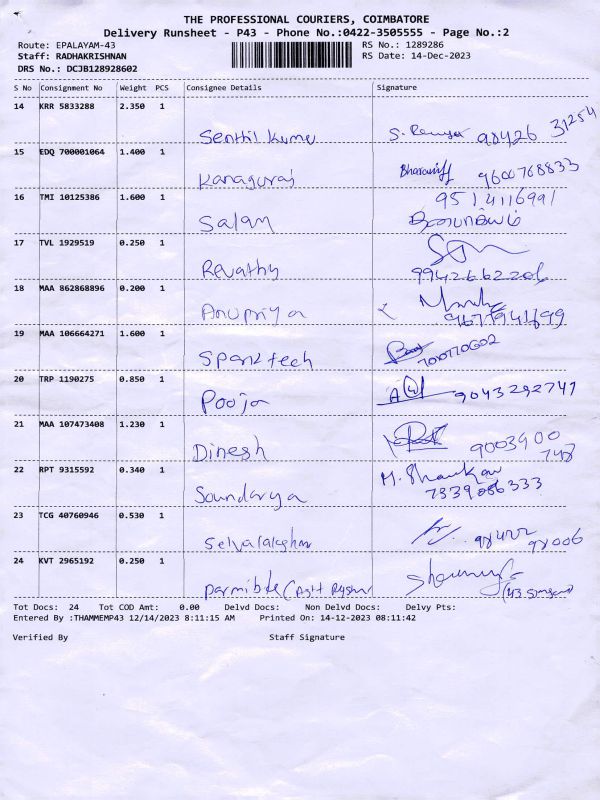 THE PROFESSIONAL COURIERS, COIMBATORE
Delivery Runsheet - P43 - Phone No.:0422-3505555 - Page No.:2
Route: EPALAYAM-43 RS No.: 1289286
Staff: RADHAKRISHNAN RS Date: 14-Dec-2023
DRS No.: DCJB128928602
S No Consignment No Weight PCS Consignee Details Signature
14 KRR 5833288 2.350 1
Senthil Kumar 98426 31254
15 EDQ 700001064 1.400 1
Kanaguraj 9600768833
16 TMI 10125386 1.600 1 9514116991
Salam
17 TVL 1929519 0.250 1
Revathy 9942662206
18 MAA 862868896 0.200 1
Anupriya 9677941699
19 MAA 106664271 1.600 1
Spanktech
20 TRP 1190275 0.850 1
Pooja 9043292741
21 MAA 107473408 1.230 1
Dinesh 9003900
748
22 RPT 9315592 0.340 1 M. Shankar
Soundarya 7339086333
23 TCG 40760946 0.530 1
98422
98006
24 KVT 2965192 0.250 1
Tot Docs: 24 Tot COD Amt: 0.00 Delvd Docs: Non Delvd Docs: Delvy Pts:
Entered By :THAMMEMP43 12/14/2023 8:11:15 AM Printed On: 14-12-2023 08:11:42
Verified By Staff Signature